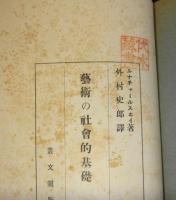 ルナチャールスキイ著
外村史郎譯
藝術の社會的基礎
叢文閣版